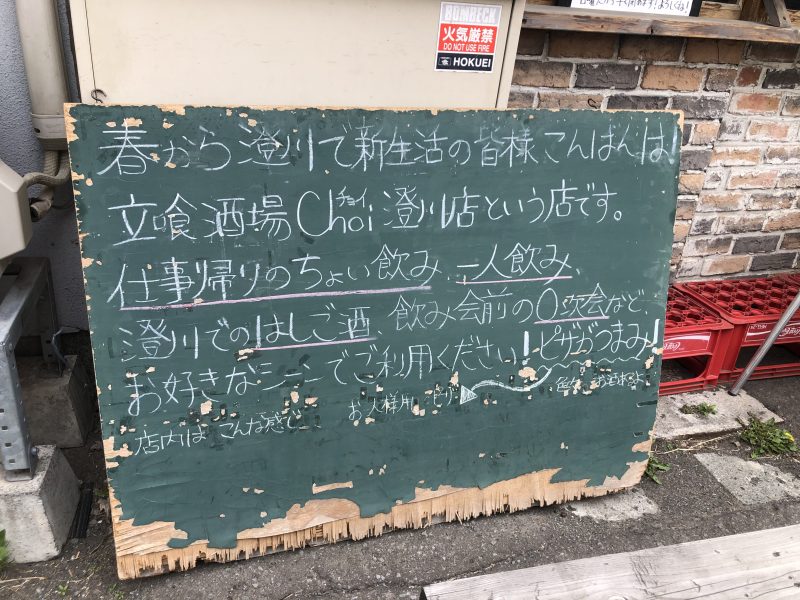 火気厳禁
DO NOT USE FIRE
HOKUEI
春から澄川で新生活の皆様、こんばんは!
立喰酒場Choi澄川店という店です。
チョイ
仕事帰りのちょい飲み、一人飲み、
澄川でのはしご酒、飲み会前の0次会など、
お好きなシーンでご利用ください!ピザがつまみ!
店内はこんな感じで